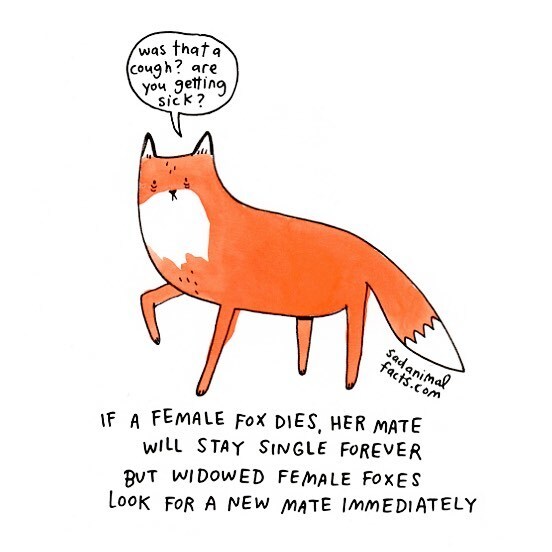 was that a
cough? are
you getting
sick?
sadanimal
facts.com
IF A FEMALE FOX DIES, HER MATE
WILL STAY SINGLE FOREVER
BUT WIDOWED FEMALE FOXES
LOOK FOR A NEW MATE IMMEDIATELY